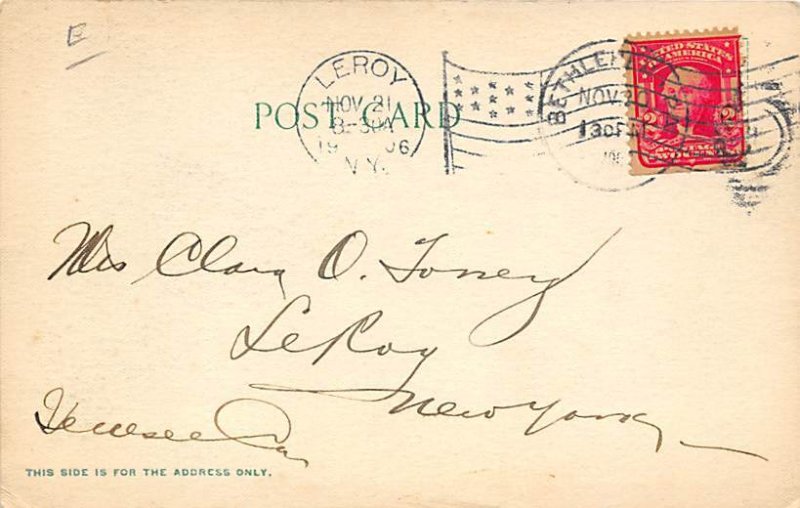 E
LEROY
NOV 21
8-30A
1906
N.Y.
POST CARD
BETHLEHEM
NOV 20
130PM
UNITED STATES
OF AMERICA
2 2
Mrs Clara O. Toney
LeRoy
New York
Genesee Co
THIS SIDE IS FOR THE ADDRESS ONLY.